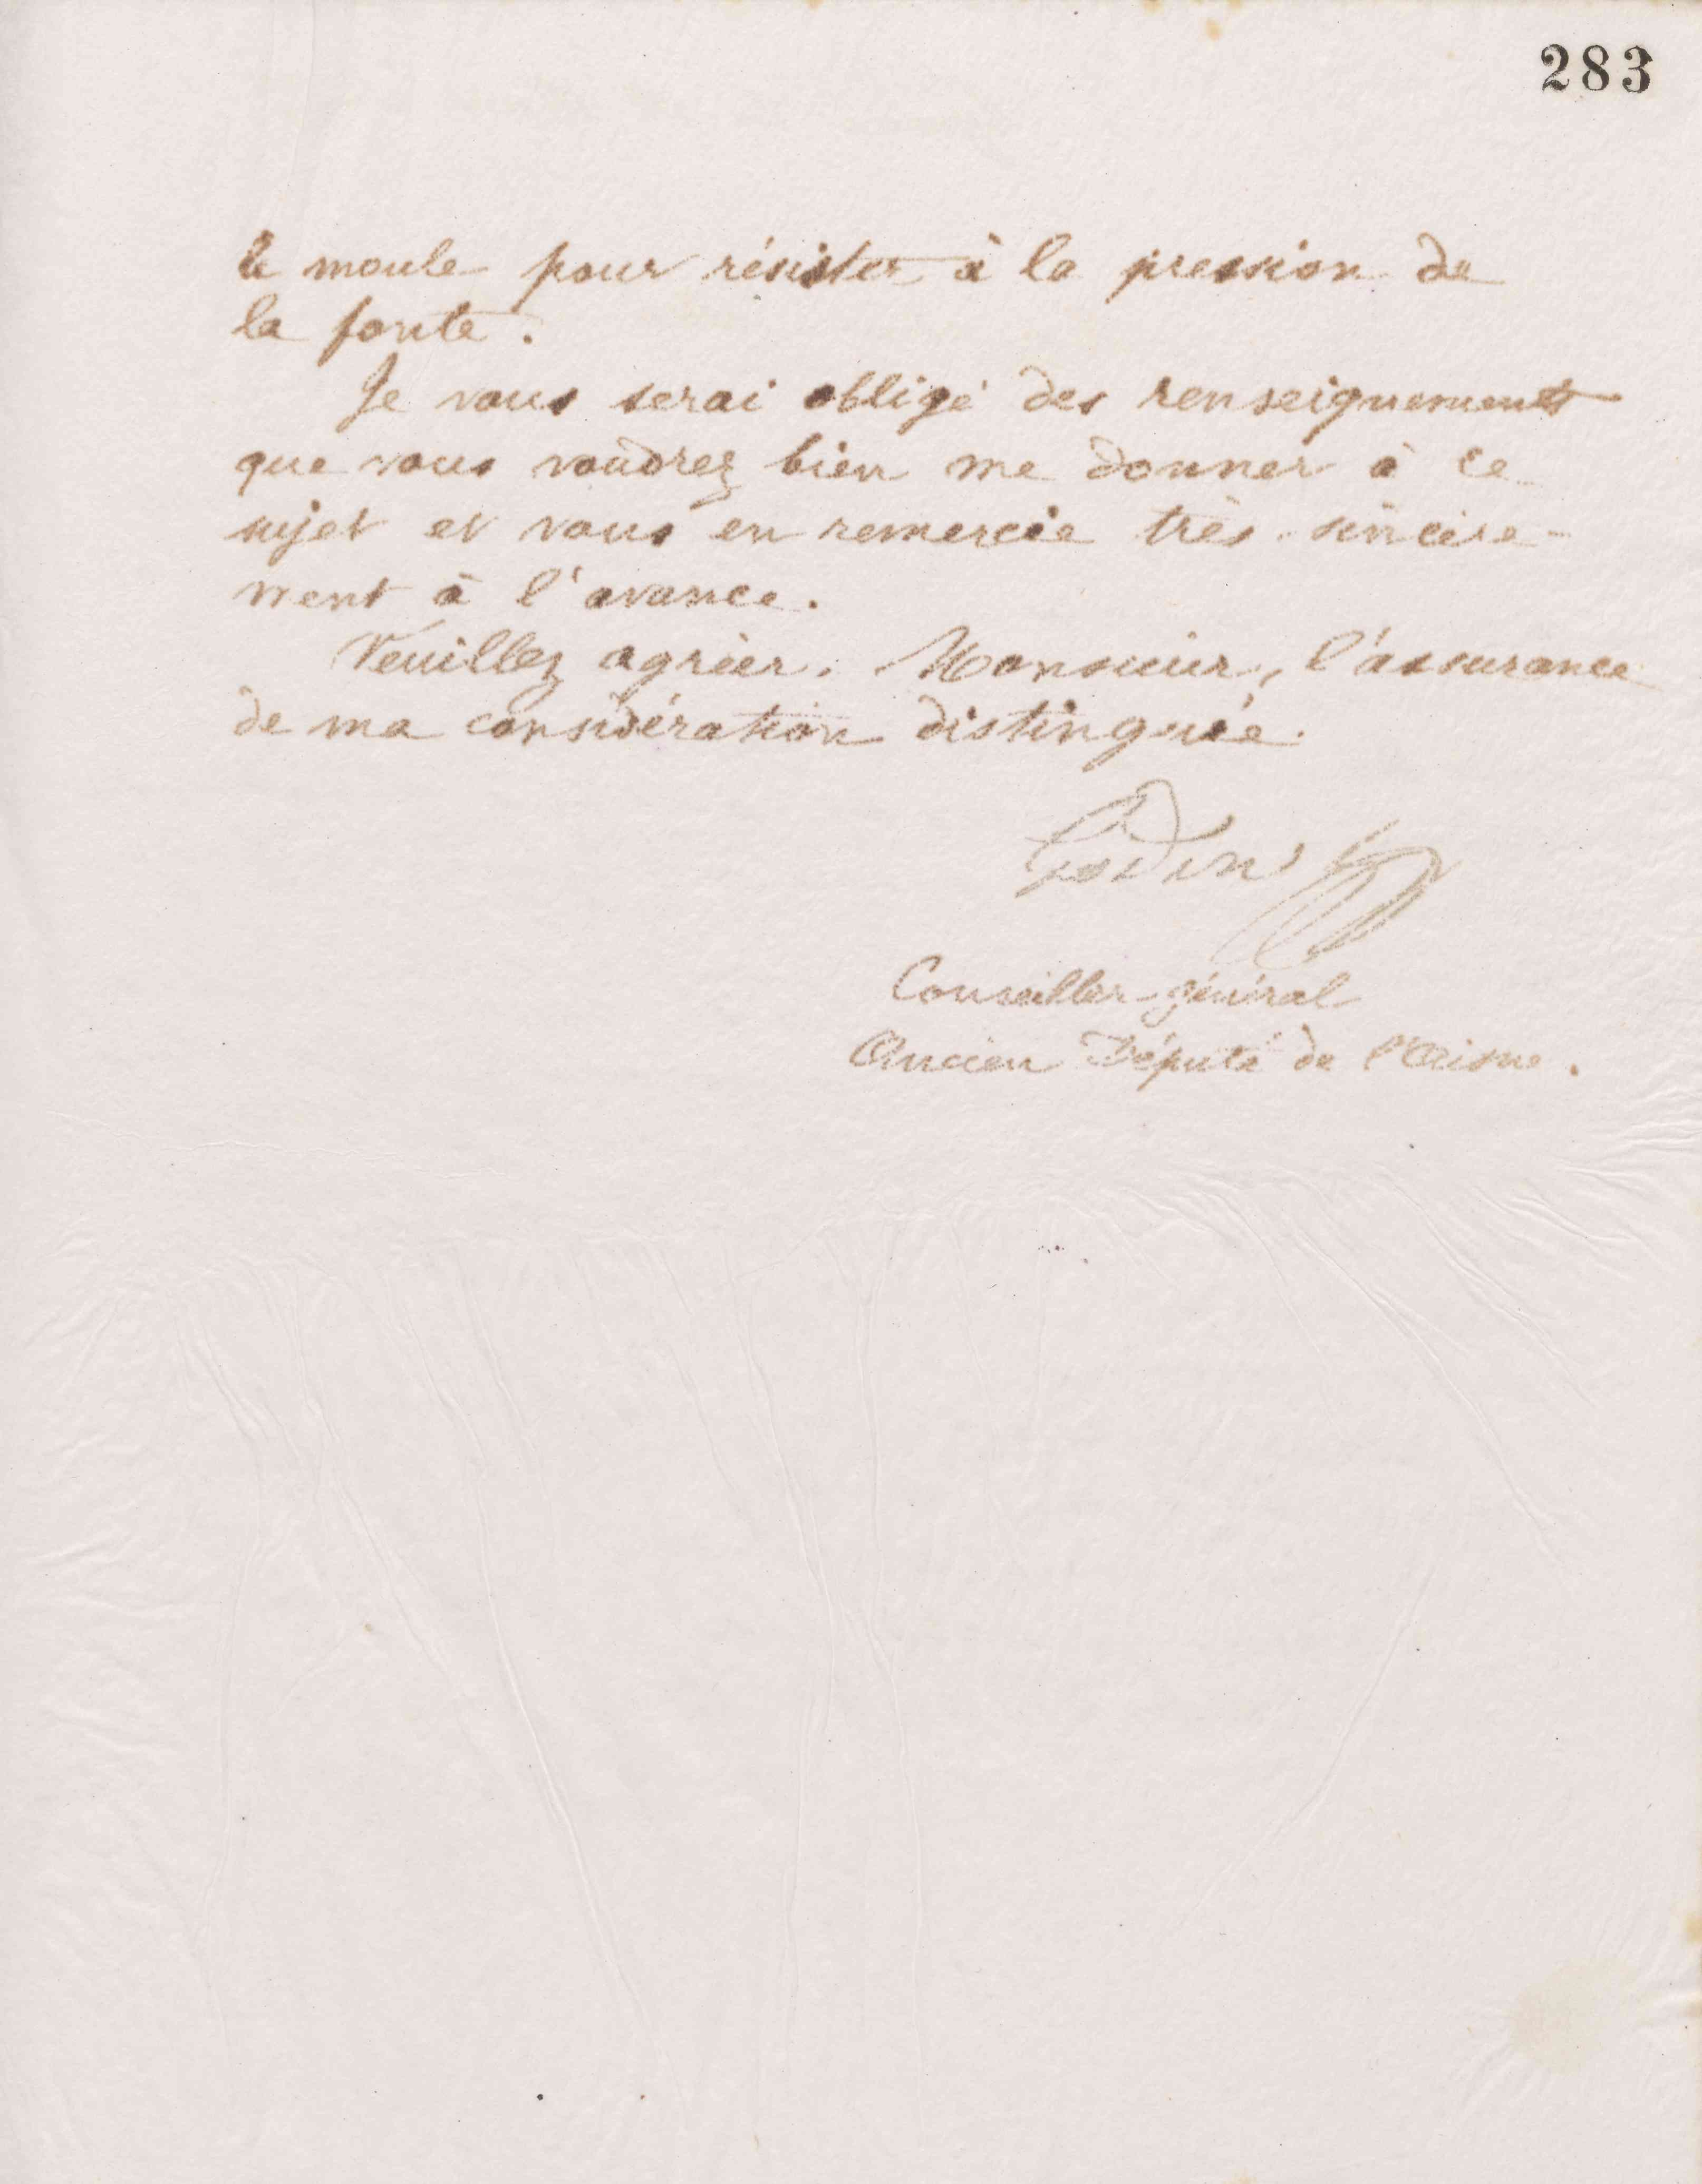 283
le moule pour résister à la pression de
la fonte.
Je vous serai obligé des renseignements
que vous voudrez bien me donner à ce
sujet et vous en remercie très sincère-
ment à l'avance.
Veuillez agréer, Monsieur, l'assurance
de ma considération distinguée.
Godin
Conseiller général
Ancien Député de l'Aisne.